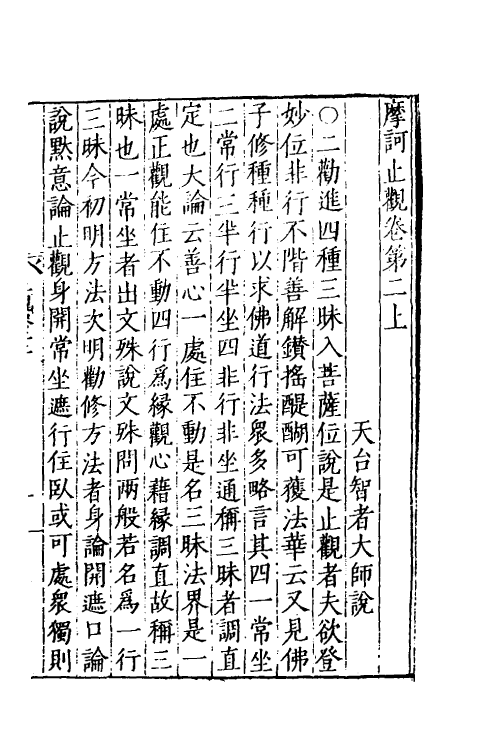 摩訶止觀卷第二上
天台智者大師說
○二勸進四種三昧入菩薩位說是止觀者夫欲登
妙位非行不階善解鑽搖醍醐可獲法華云又見佛
子修種種行以求佛道行法衆多略言其四一常坐
二常行三半行半坐四非行非坐通稱三昧者調直
定也大論云善心一處住不動是名三昧法界是一
處正觀能住不動四行爲緣觀心藉緣調直故稱三
昧也一常坐者出文殊說文殊問兩般若名爲一行
三昧今初明方法次明勸修方法者身論開遮口論
說默意論止觀身開常坐遮行住臥或可處衆獨則